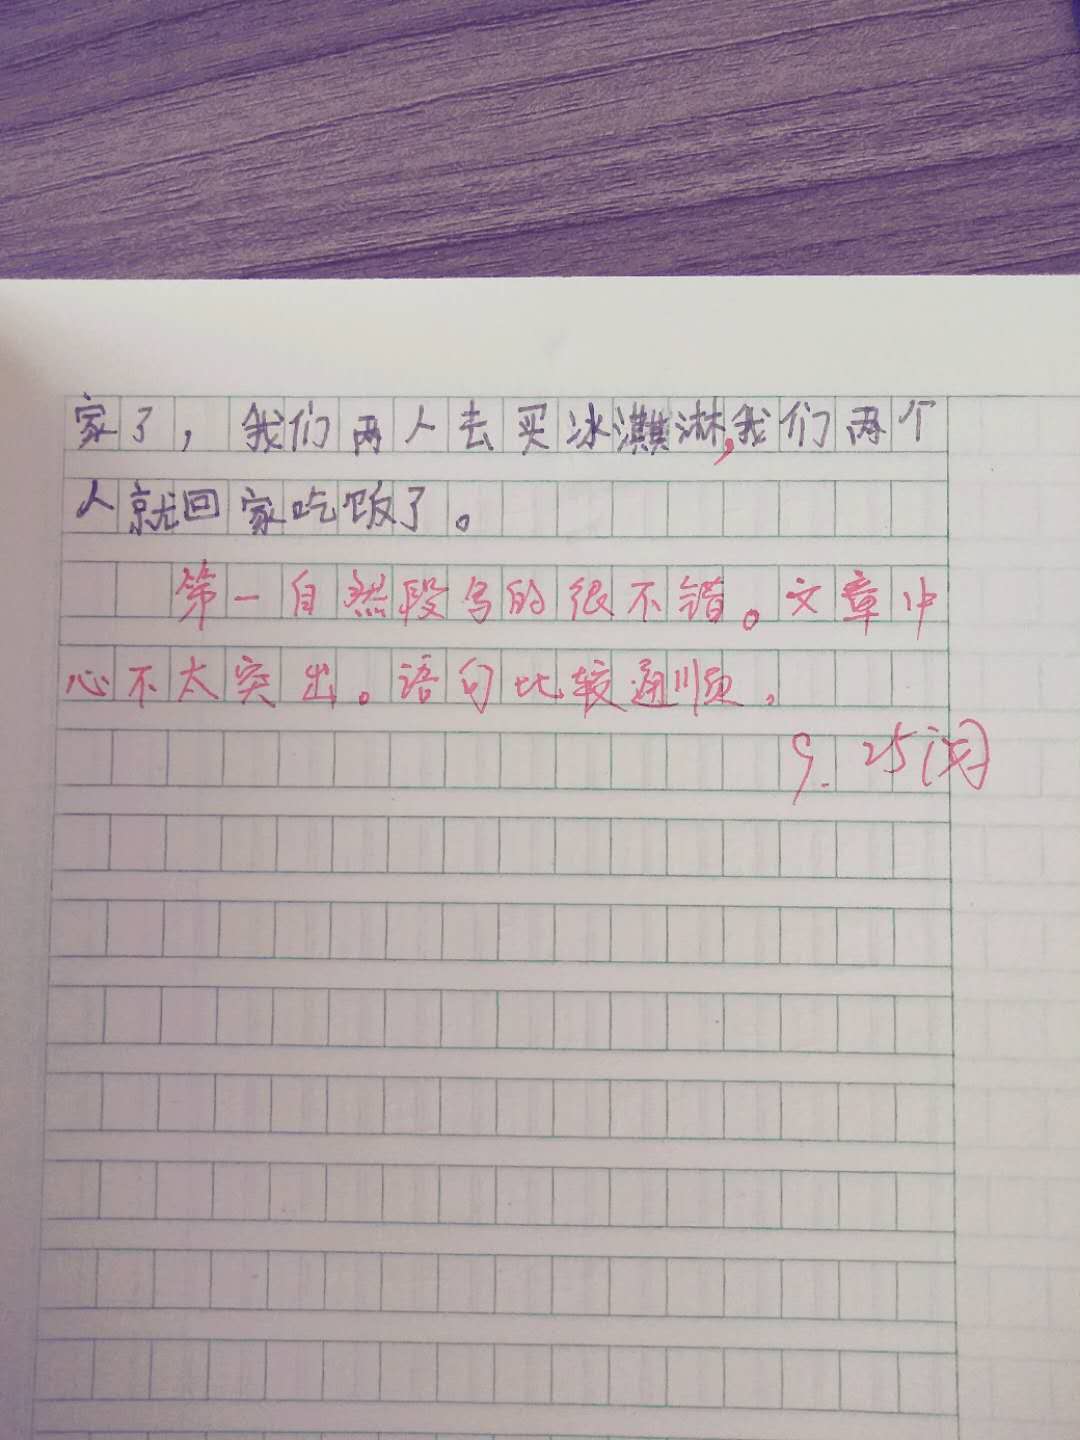 家了，我们两人去买冰淇淋,我们两个
人就回家吃饭了。
第一自然段写的很不错。文章中
心不太突出。语句比较通顺.
9.25阅